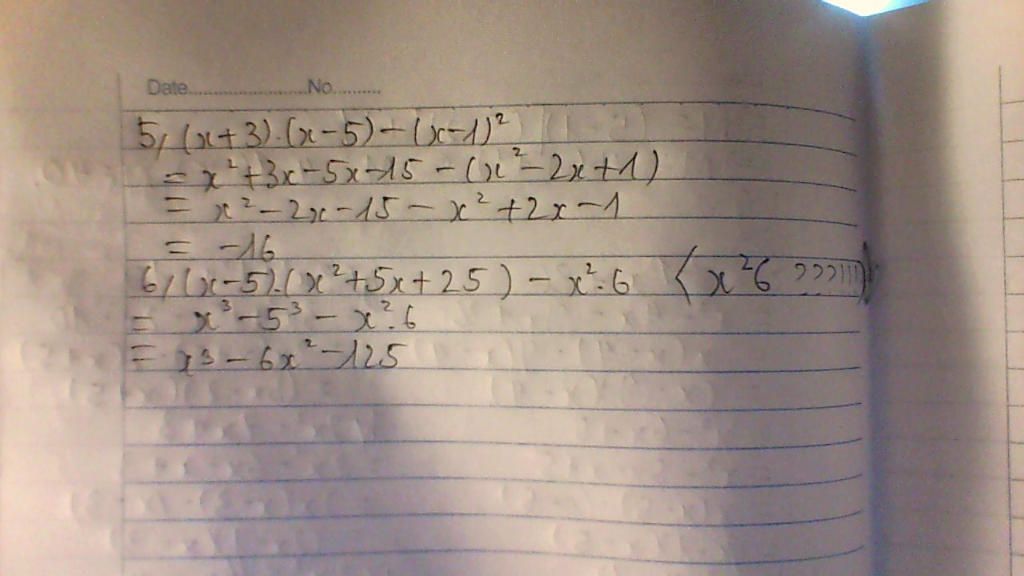 Date......................No..........
5, (x+3).(x-5)-(x-1)²
= x²+3x-5x-15-(x²-2x+1)
= x²-2x-15-x²+2x-1
= -16
6, (x-5).(x²+5x+25)-x².6 (x²6 ???!!!)
= x³-5³-x².6
= x³-6x²-125